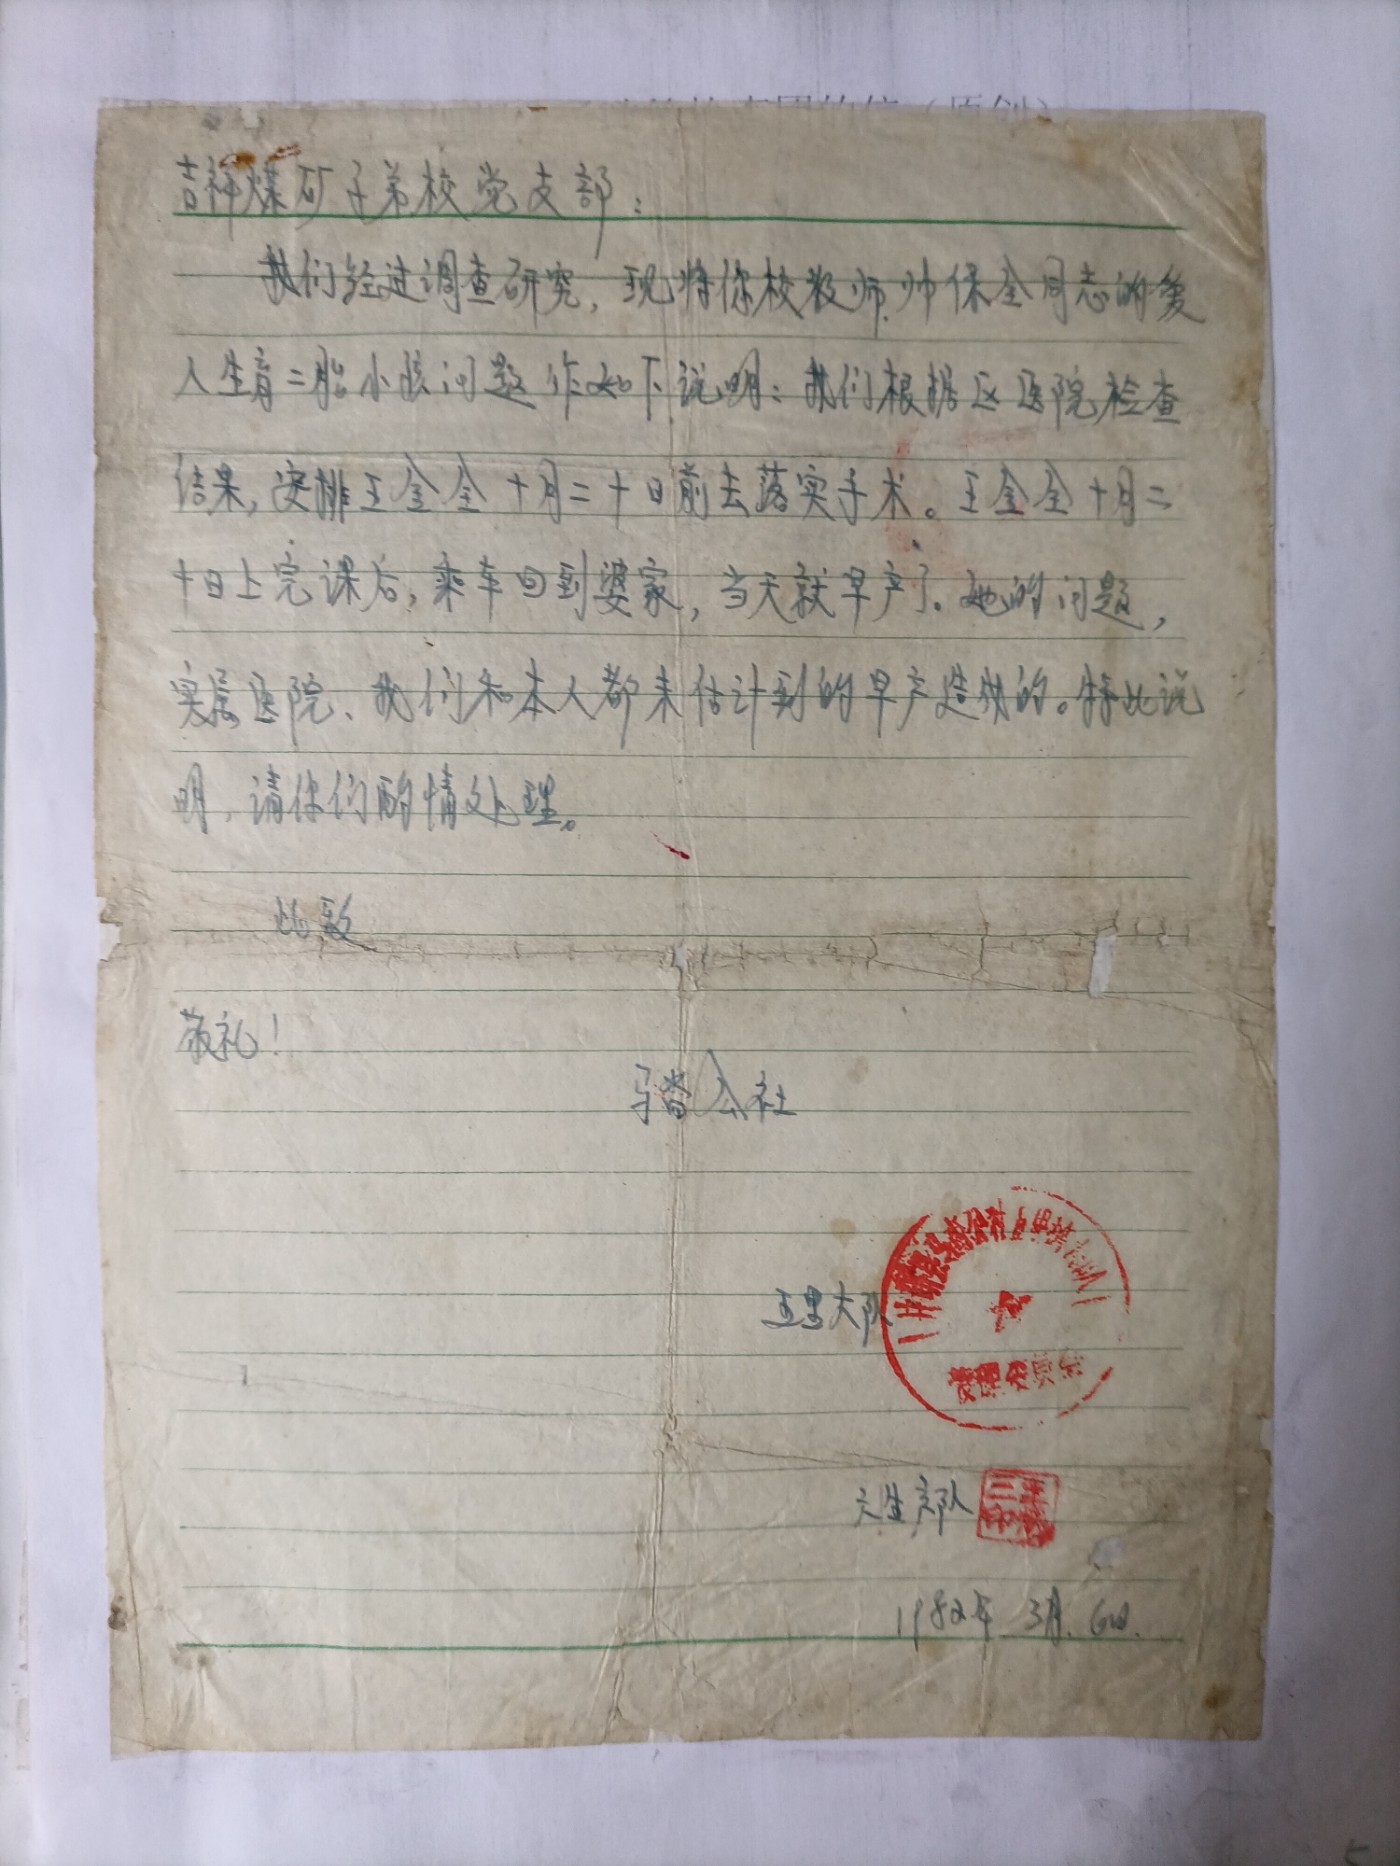 吉祥煤矿子弟校党支部：
我们经过调查研究，现将你校教师帅保全同志的爱
人生育二胎小孩问题作如下说明：我们根据区医院检查
结果，安排王金全十月二十日前去落实手术。王金全十月二
十日上完课后，乘车回到婆家，当天就早产了。她的问题，
实属医院、我们和本人都未估计到的早产造成的。特此说
明，请你们酌情处理。
此致
敬礼！
马踏公社
大队
生产队
1982年3月6日